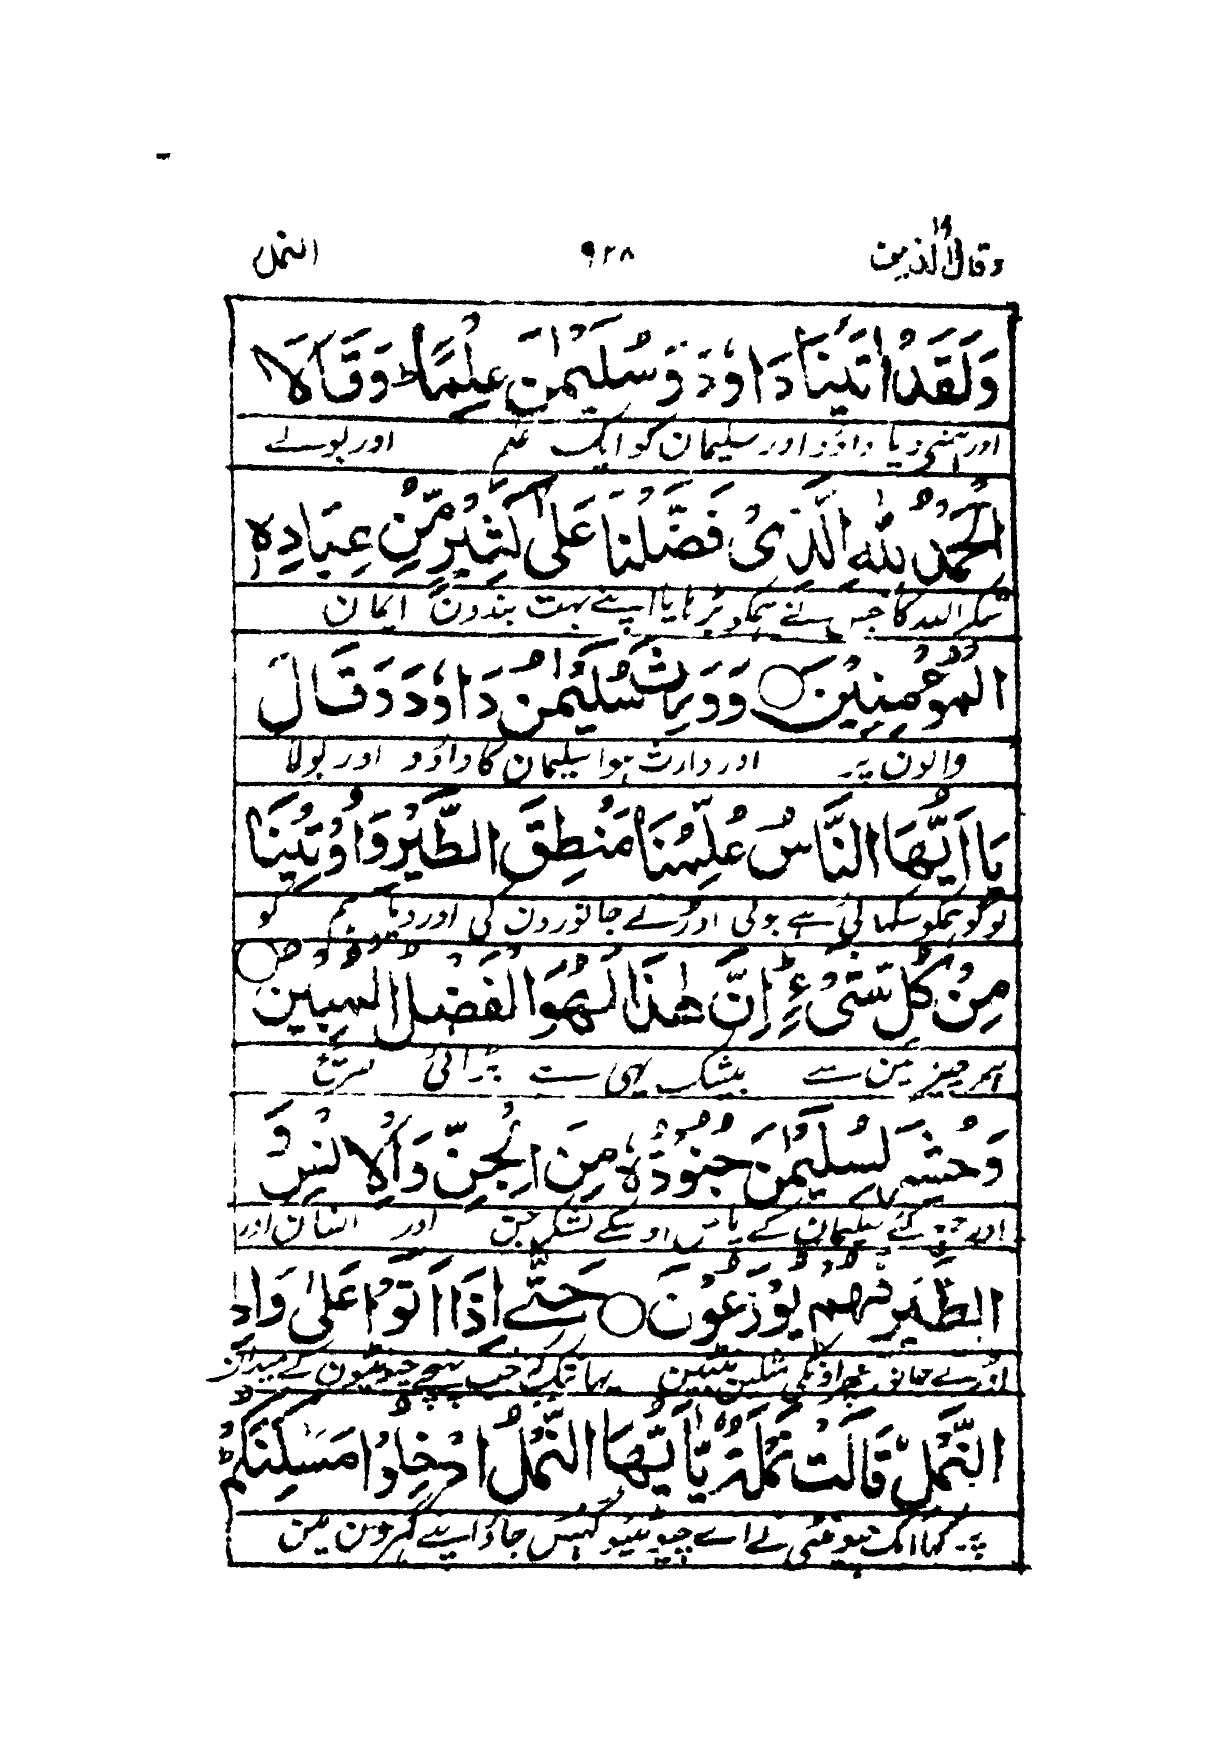 وقال الذين ١٩ ٩٢٨ النمل
وَلَقَدْ اٰتَيْنَا دَاوٗدَ وَسُلَيْمٰنَ عِلْمًا ۚ وَقَالَا
اور ہمنے دیا داؤد اور سلیمان کو ایک علم اور بولے
الْحَمْدُ لِلّٰهِ الَّذِىْ فَضَّلَنَا عَلٰى كَثِيْرٍ مِّنْ عِبَادِهِ
شکر اللہ کا جسنے ہمکو بڑہایا اپنے بہت بندون ایمان
الْمُؤْمِنِيْنَ ○ وَوَرِثَ سُلَيْمٰنُ دَاوٗدَ وَقَالَ
والون پر اور وارث ہوا سلیمان کا داؤد اور بولا
يَا اَيُّهَا النَّاسُ عُلِّمْنَا مَنْطِقَ الطَّيْرِ وَاُوْتِيْنَا
لوگو ہمکو سکھائی ہے بولی اوڑتے جانورون کی اور دیا ہم کو
مِنْ كُلِّ شَىْءٍ ؕ اِنَّ هٰذَا لَهُوَ الْفَضْلُ الْمُبِيْنُ ○
ہر چیز مین سے بیشک یہی ہے بڑائی صریح
وَحُشِرَ لِسُلَيْمٰنَ جُنُوْدُهٗ مِنَ الْجِنِّ وَالْاِنْسِ وَ
اور جمع کئے سلیمان کے پاس اوسکے لشکر جن اور انسان اور
الطَّيْرِ فَهُمْ يُوْزَعُوْنَ ○ حَتّٰى اِذَا اَتَوْا عَلٰى وَادِ
اوڑتے جانور پھر اونکی مثلین بٹتین یہانتک کہ جب پہنچے چیونٹیون کے میدان
النَّمْلِ قَالَتْ نَمْلَةٌ يّٰاَيُّهَا النَّمْلُ ادْخُلُوْا مَسٰكِنَكُمْ
پر کہا ایک چیونٹی نے اے چیونٹیو گھس جاؤ اپنے گھرون مین